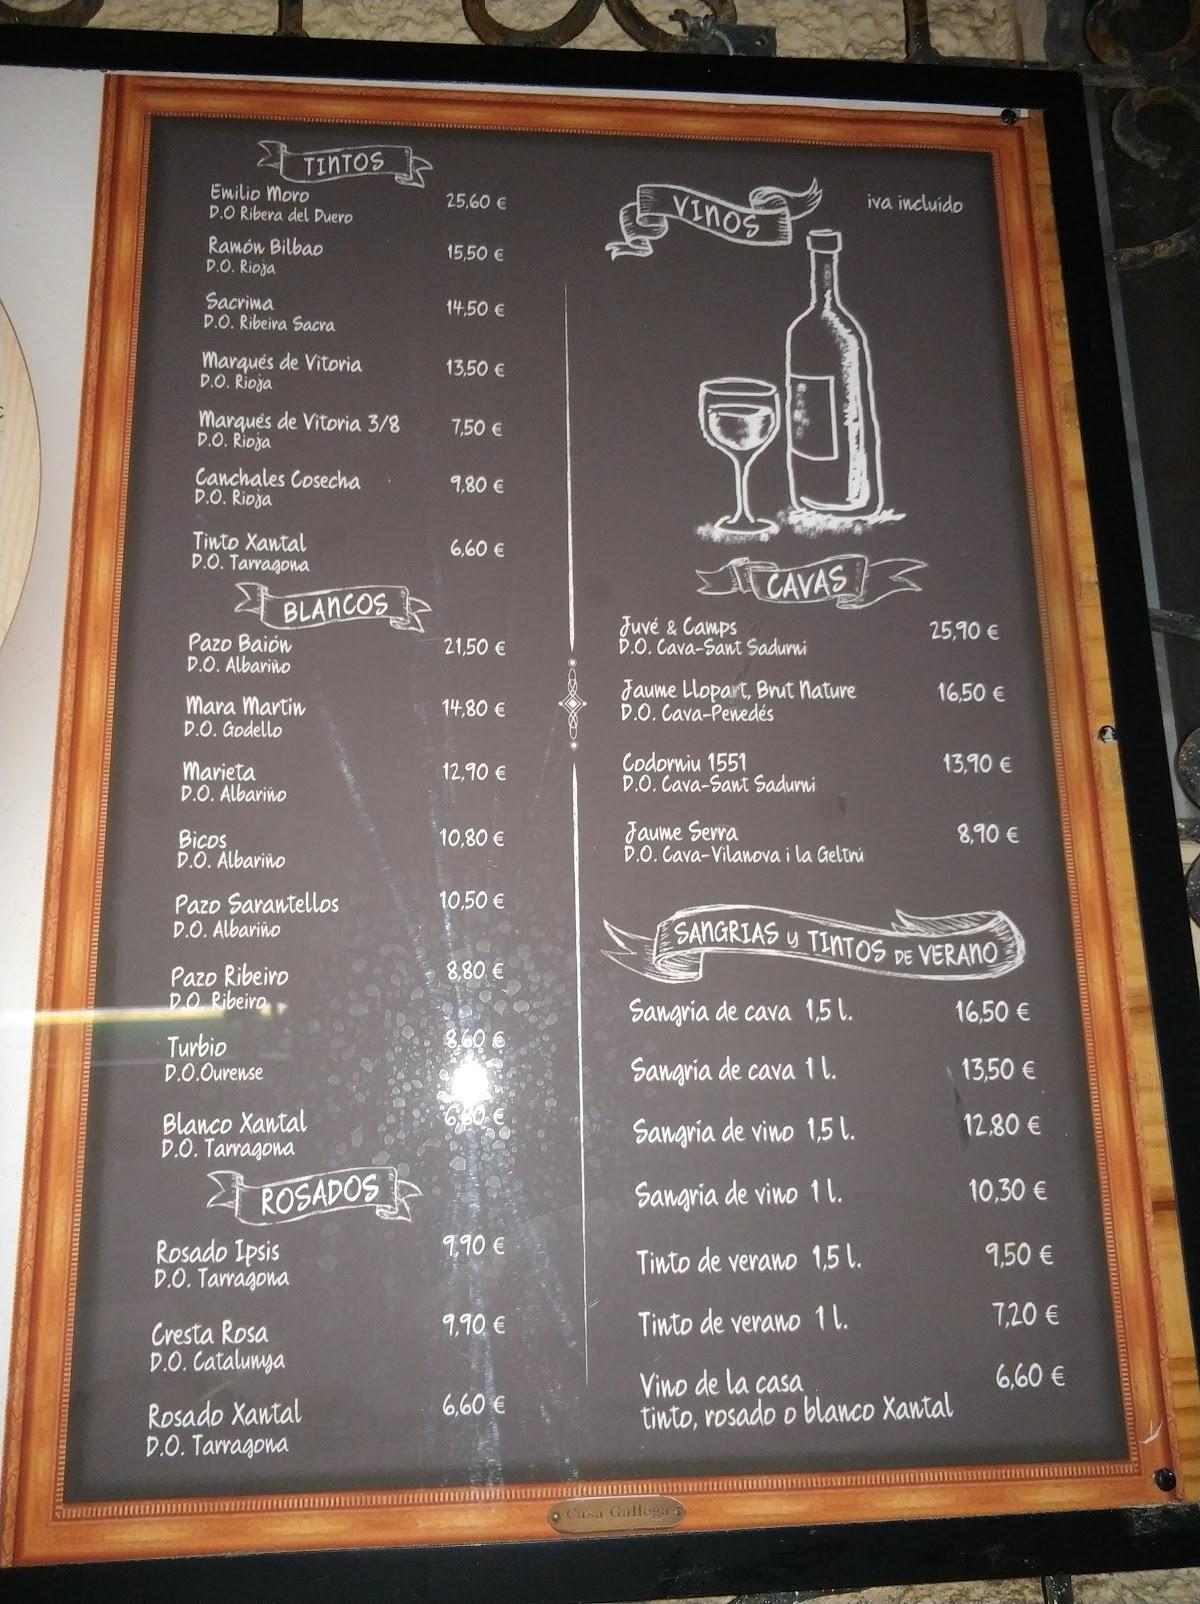 TINTOS
Emilio Moro 25,60 €
D.O Ribera del Duero
Ramón Bilbao 15,50 €
D.O. Rioja
Sacrima 14,50 €
D.O. Ribeira Sacra
Marqués de Vitoria 13,50 €
D.O. Rioja
Marqués de Vitoria 3/8 7,50 €
D.O. Rioja
Canchales Cosecha 9,80 €
D.O. Rioja
Tinto Xantal 6,60 €
D.O. Tarragona
BLANCOS
Pazo Baión 21,50 €
D.O. Albariño
Mara Martín 14,80 €
D.O. Godello
Marieta 12,90 €
D.O. Albariño
Bicos 10,80 €
D.O. Albariño
Pazo Sarantellos 10,50 €
D.O. Albariño
Pazo Ribeiro 8,80 €
D.O. Ribeiro
Turbio 8,60 €
D.O.Ourense
Blanco Xantal 6,60 €
D.O. Tarragona
ROSADOS
Rosado Ipsis 9,90 €
D.O. Tarragona
Cresta Rosa 9,90 €
D.O. Catalunya
Rosado Xantal 6,60 €
D.O. Tarragona
VINOS
iva incluido
CAVAS
Juvé & Camps 25,90 €
D.O. Cava-Sant Sadurni
Jaume Llopart, Brut Nature 16,50 €
D.O. Cava-Penedés
Codorniu 1551 13,90 €
D.O. Cava-Sant Sadurni
Jaume Serra 8,90 €
D.O. Cava-Vilanova i la Geltrú
SANGRIAS y TINTOS DE VERANO
Sangría de cava 1,5 l. 16,50 €
Sangría de cava 1 l. 13,50 €
Sangría de vino 1,5 l. 12,80 €
Sangría de vino 1 l. 10,30 €
Tinto de verano 1,5 l. 9,50 €
Tinto de verano 1 l. 7,20 €
Vino de la casa 6,60 €
tinto, rosado o blanco Xantal
Casa Gallega